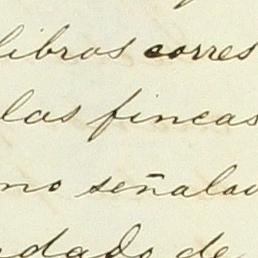 libros corres
las fincas
no señala
dado de